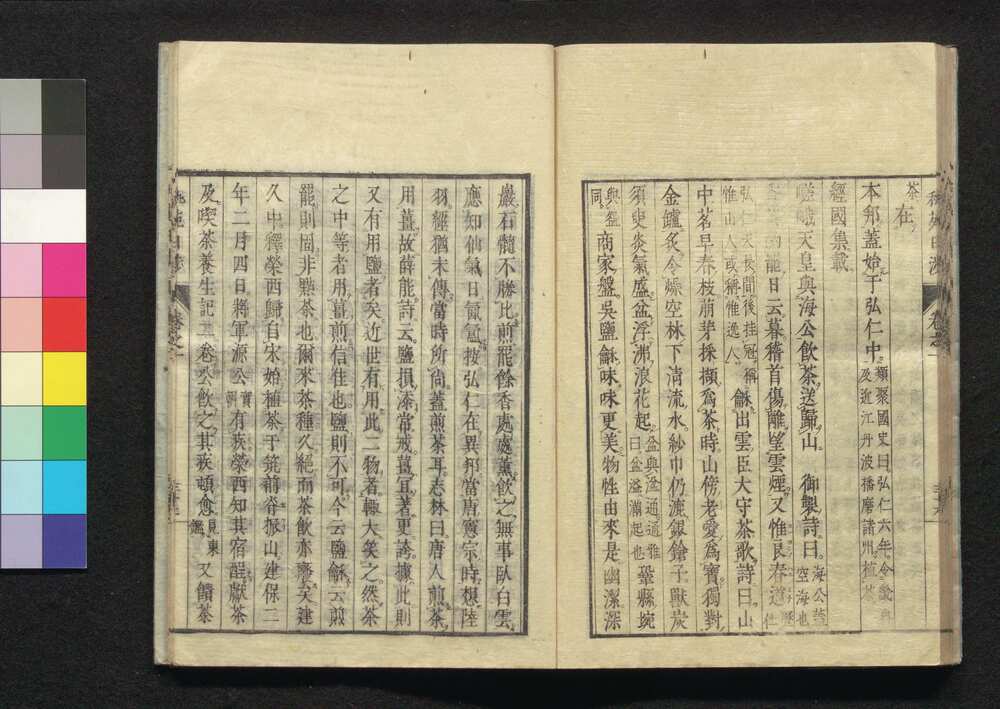 茶
在
本邦蓋始于弘仁中類聚國史曰弘仁六年令畿內及近江丹波播磨諸州植茶
經國集載
嵯峨天皇與海公飲茶送歸山御製詩曰海公蓋空海也
云暮稽首傷離望雲煙又惟良春道
弘仁天長間後挂冠稱惟山人或稱惟逸人龢出雲臣大守茶歌詩曰山
中茗早春枝萠芽採擷爲茶時山傍老愛爲寶獨對
金鑪炙令燥空林下淸流水紗巾仍漉銀鎗子獸炭
須臾炎氣盛盆浮沸浪花起盆與溢通通雅曰盆溢滿起也鞏縣埦
與盌同商家盤吳鹽龢味味更美物性由來是幽潔深
巖石髓不勝此煎罷餘香處處薰飲之無事臥白雲
應知仙氣日氤氳按弘仁在異邦當唐憲宗時想陸
羽經猶未傳當時所尙蓋煎茶耳志林曰唐人煎茶
用薑故薛能詩云鹽損添常戒薑宜著更誇據此則
又有用鹽者矣近世有用此二物者輙大笑之然茶
之中等者用薑煎信佳也鹽則不可今云鹽龢云煎
罷則固非點茶也爾來茶種久絕而茶飲亦廢矣建
久中釋榮西歸自宋始植茶于筑前脊振山建保二
年二月四日將軍源公實朝有疾榮西知其宿酲獻茶
及喫茶養生記一卷公飲之其疾頓愈見東鑑又饋茶